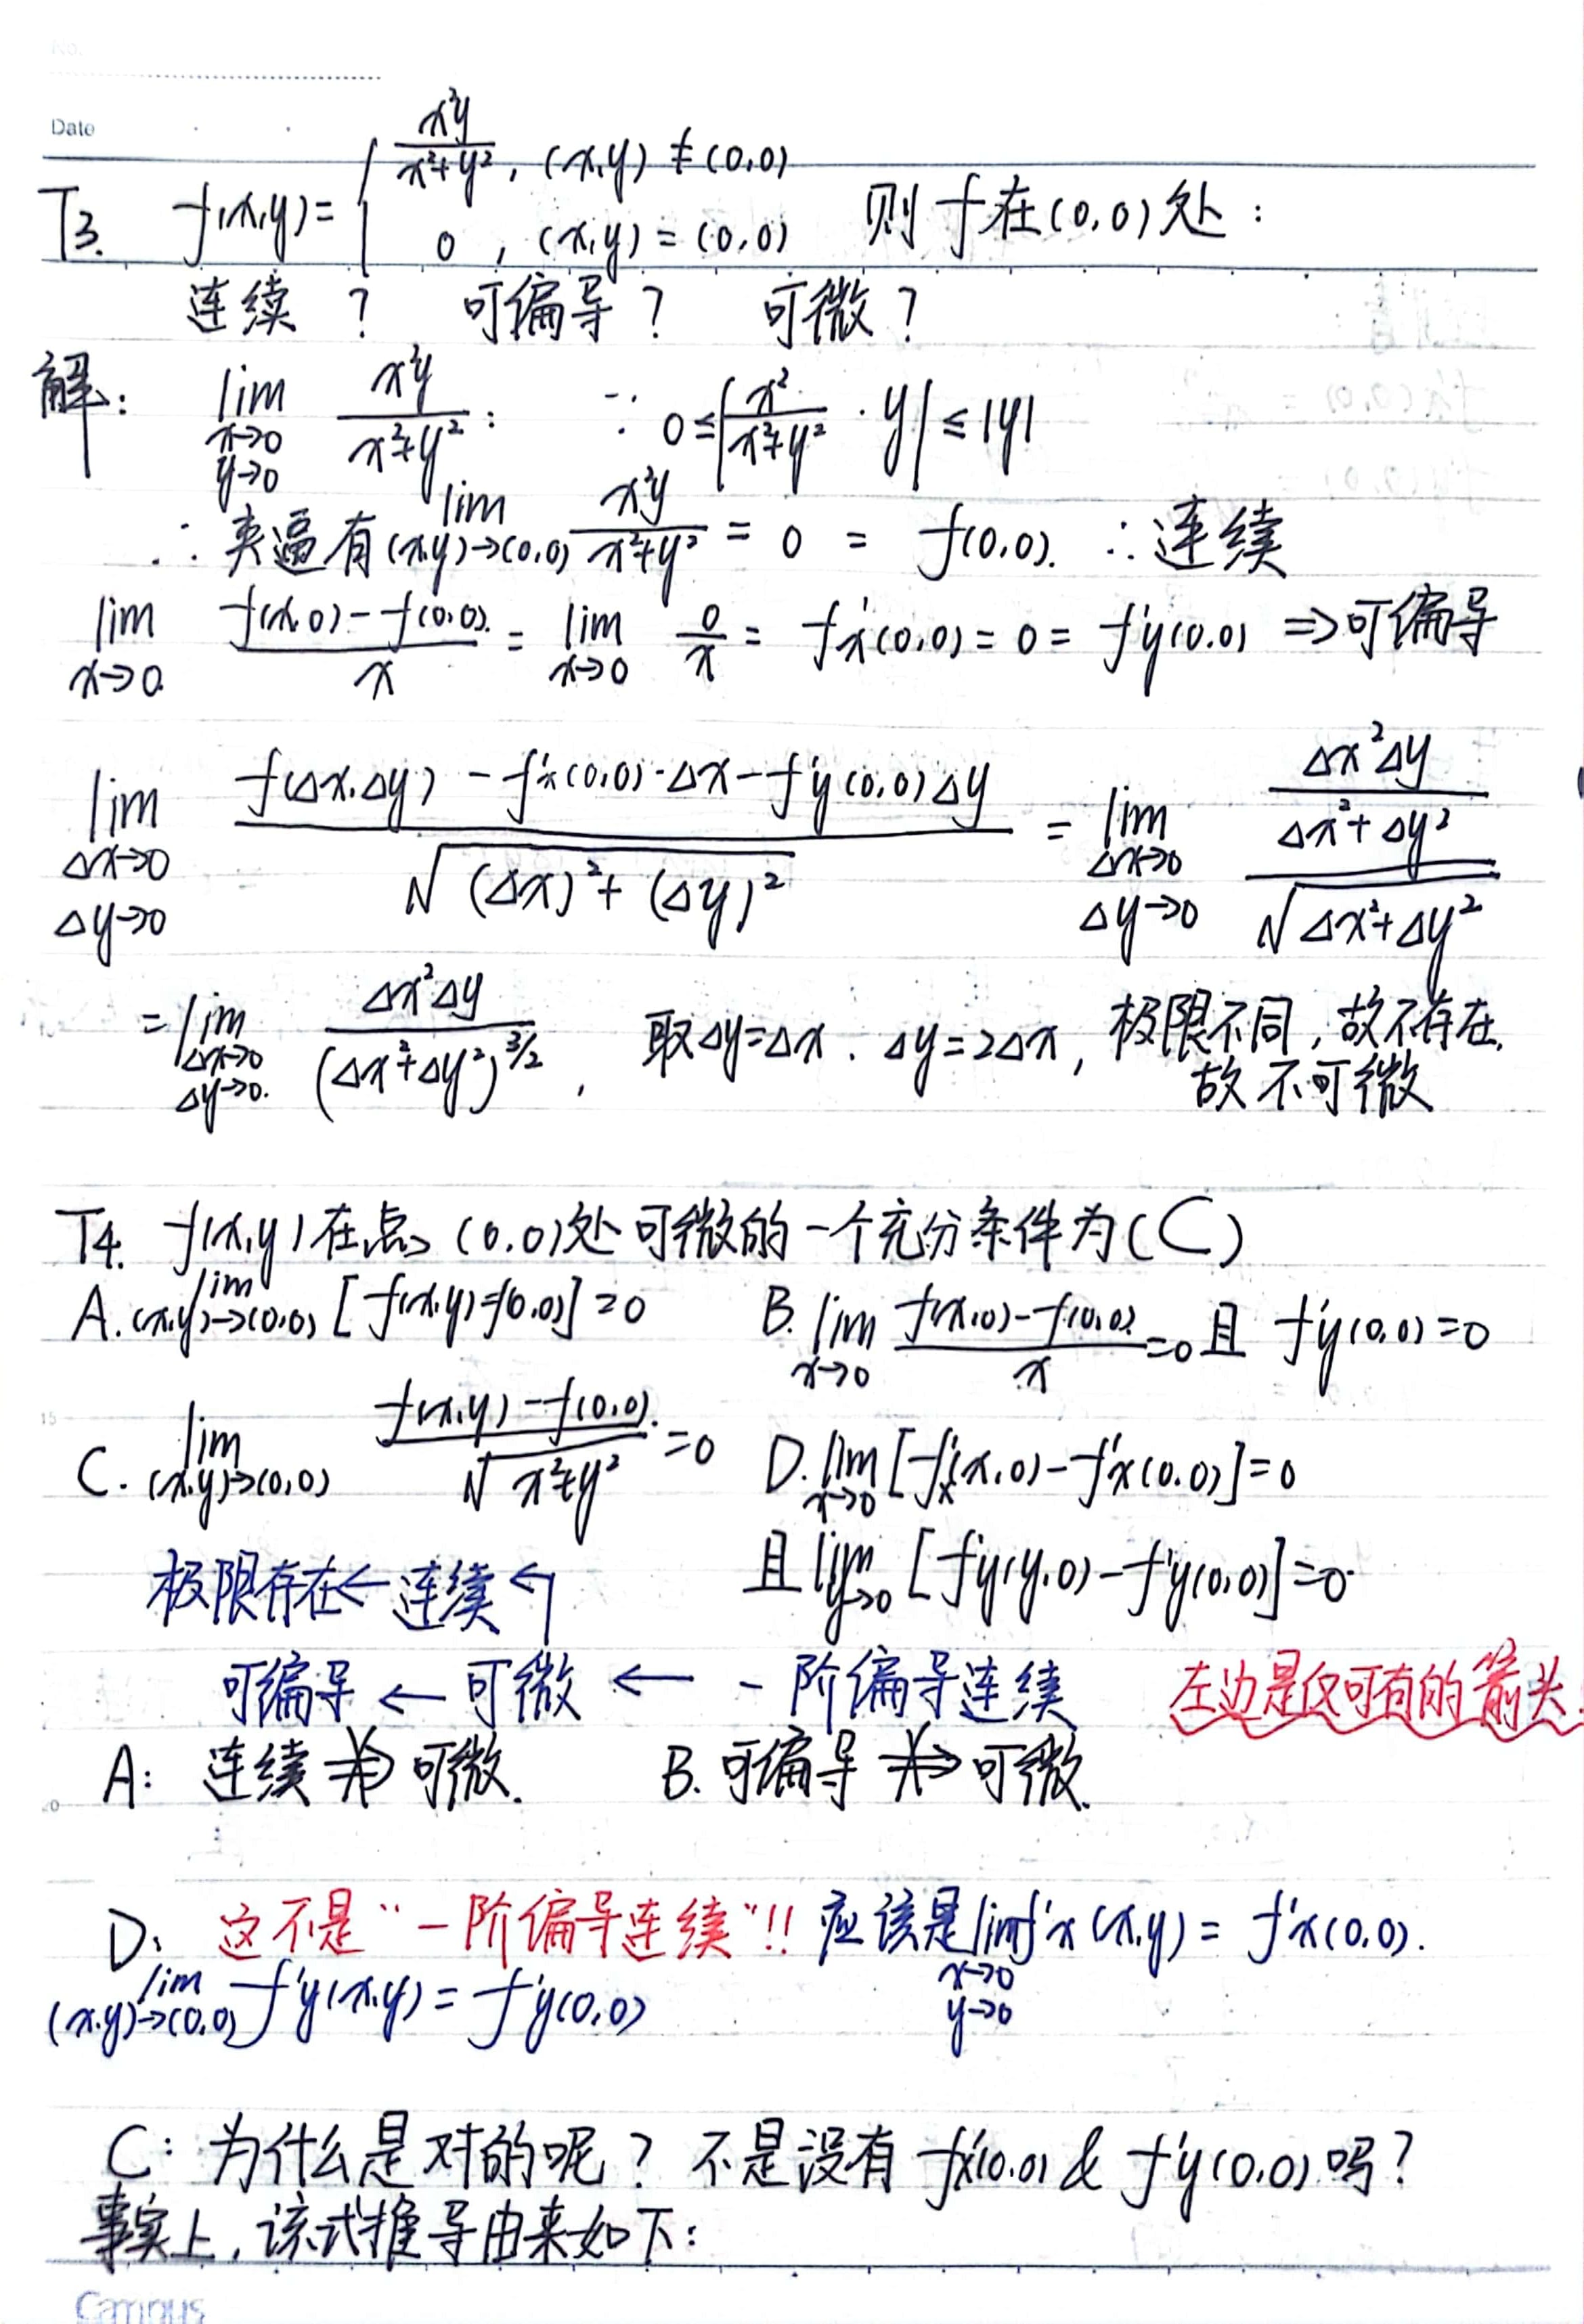 No.
Date
T3. f(x,y)= { x²y/(x²+y²), (x,y)≠(0,0)
0, (x,y)=(0,0) 则f在(0,0)处:
连续? 可偏导? 可微?
解: lim x→0 y→0 x²y/(x²+y²): ∵ 0≤|x²/(x²+y²)·y|≤|y|
∴夹逼有 lim (x,y)→(0,0) x²y/(x²+y²) = 0 = f(0,0). ∴连续
lim x→0 (f(x,0)-f(0,0))/x = lim x→0 0/x = f'x(0,0)=0=f'y(0,0) ⇒可偏导
lim Δx→0 Δy→0 (f(Δx,Δy)-f'x(0,0)·Δx-f'y(0,0)Δy)/√((Δx)²+(Δy)²) = lim Δx→0 Δy→0 (Δx²Δy/(Δx²+Δy²))/√(Δx²+Δy²)
= lim Δx→0 Δy→0. Δx²Δy/(Δx²+Δy²)^(3/2), 取Δy=Δx. Δy=2Δx, 极限不同,故不存在,
故不可微
T4. f(x,y)在点(0,0)处可微的一个充分条件为(C)
A. lim (x,y)→(0,0) [f(x,y)-f(0,0)]=0 B. lim x→0 (f(x,0)-f(0,0))/x=0且 f'y(0,0)=0
C. lim (x,y)→(0,0) (f(x,y)-f(0,0))/√(x²+y²)=0 D. lim x→0 [f'x(x,0)-f'x(0,0)]=0
且lim y→0 [f'y(y,0)-f'y(0,0)]=0
极限存在←连续↰
可偏导←可微←一阶偏导连续 左边是仅可有的箭头.
A: 连续⇏可微. B. 可偏导⇏可微.
D: 这不是"一阶偏导连续"!! 应该是 lim x→0 y→0 f'x(x,y)= f'x(0,0).
lim (x,y)→(0,0) f'y(x,y)=f'y(0,0)
C: 为什么是对的呢? 不是没有 f'x(0,0) & f'y(0,0)吗?
事实上,该式推导由来如下:
Campus